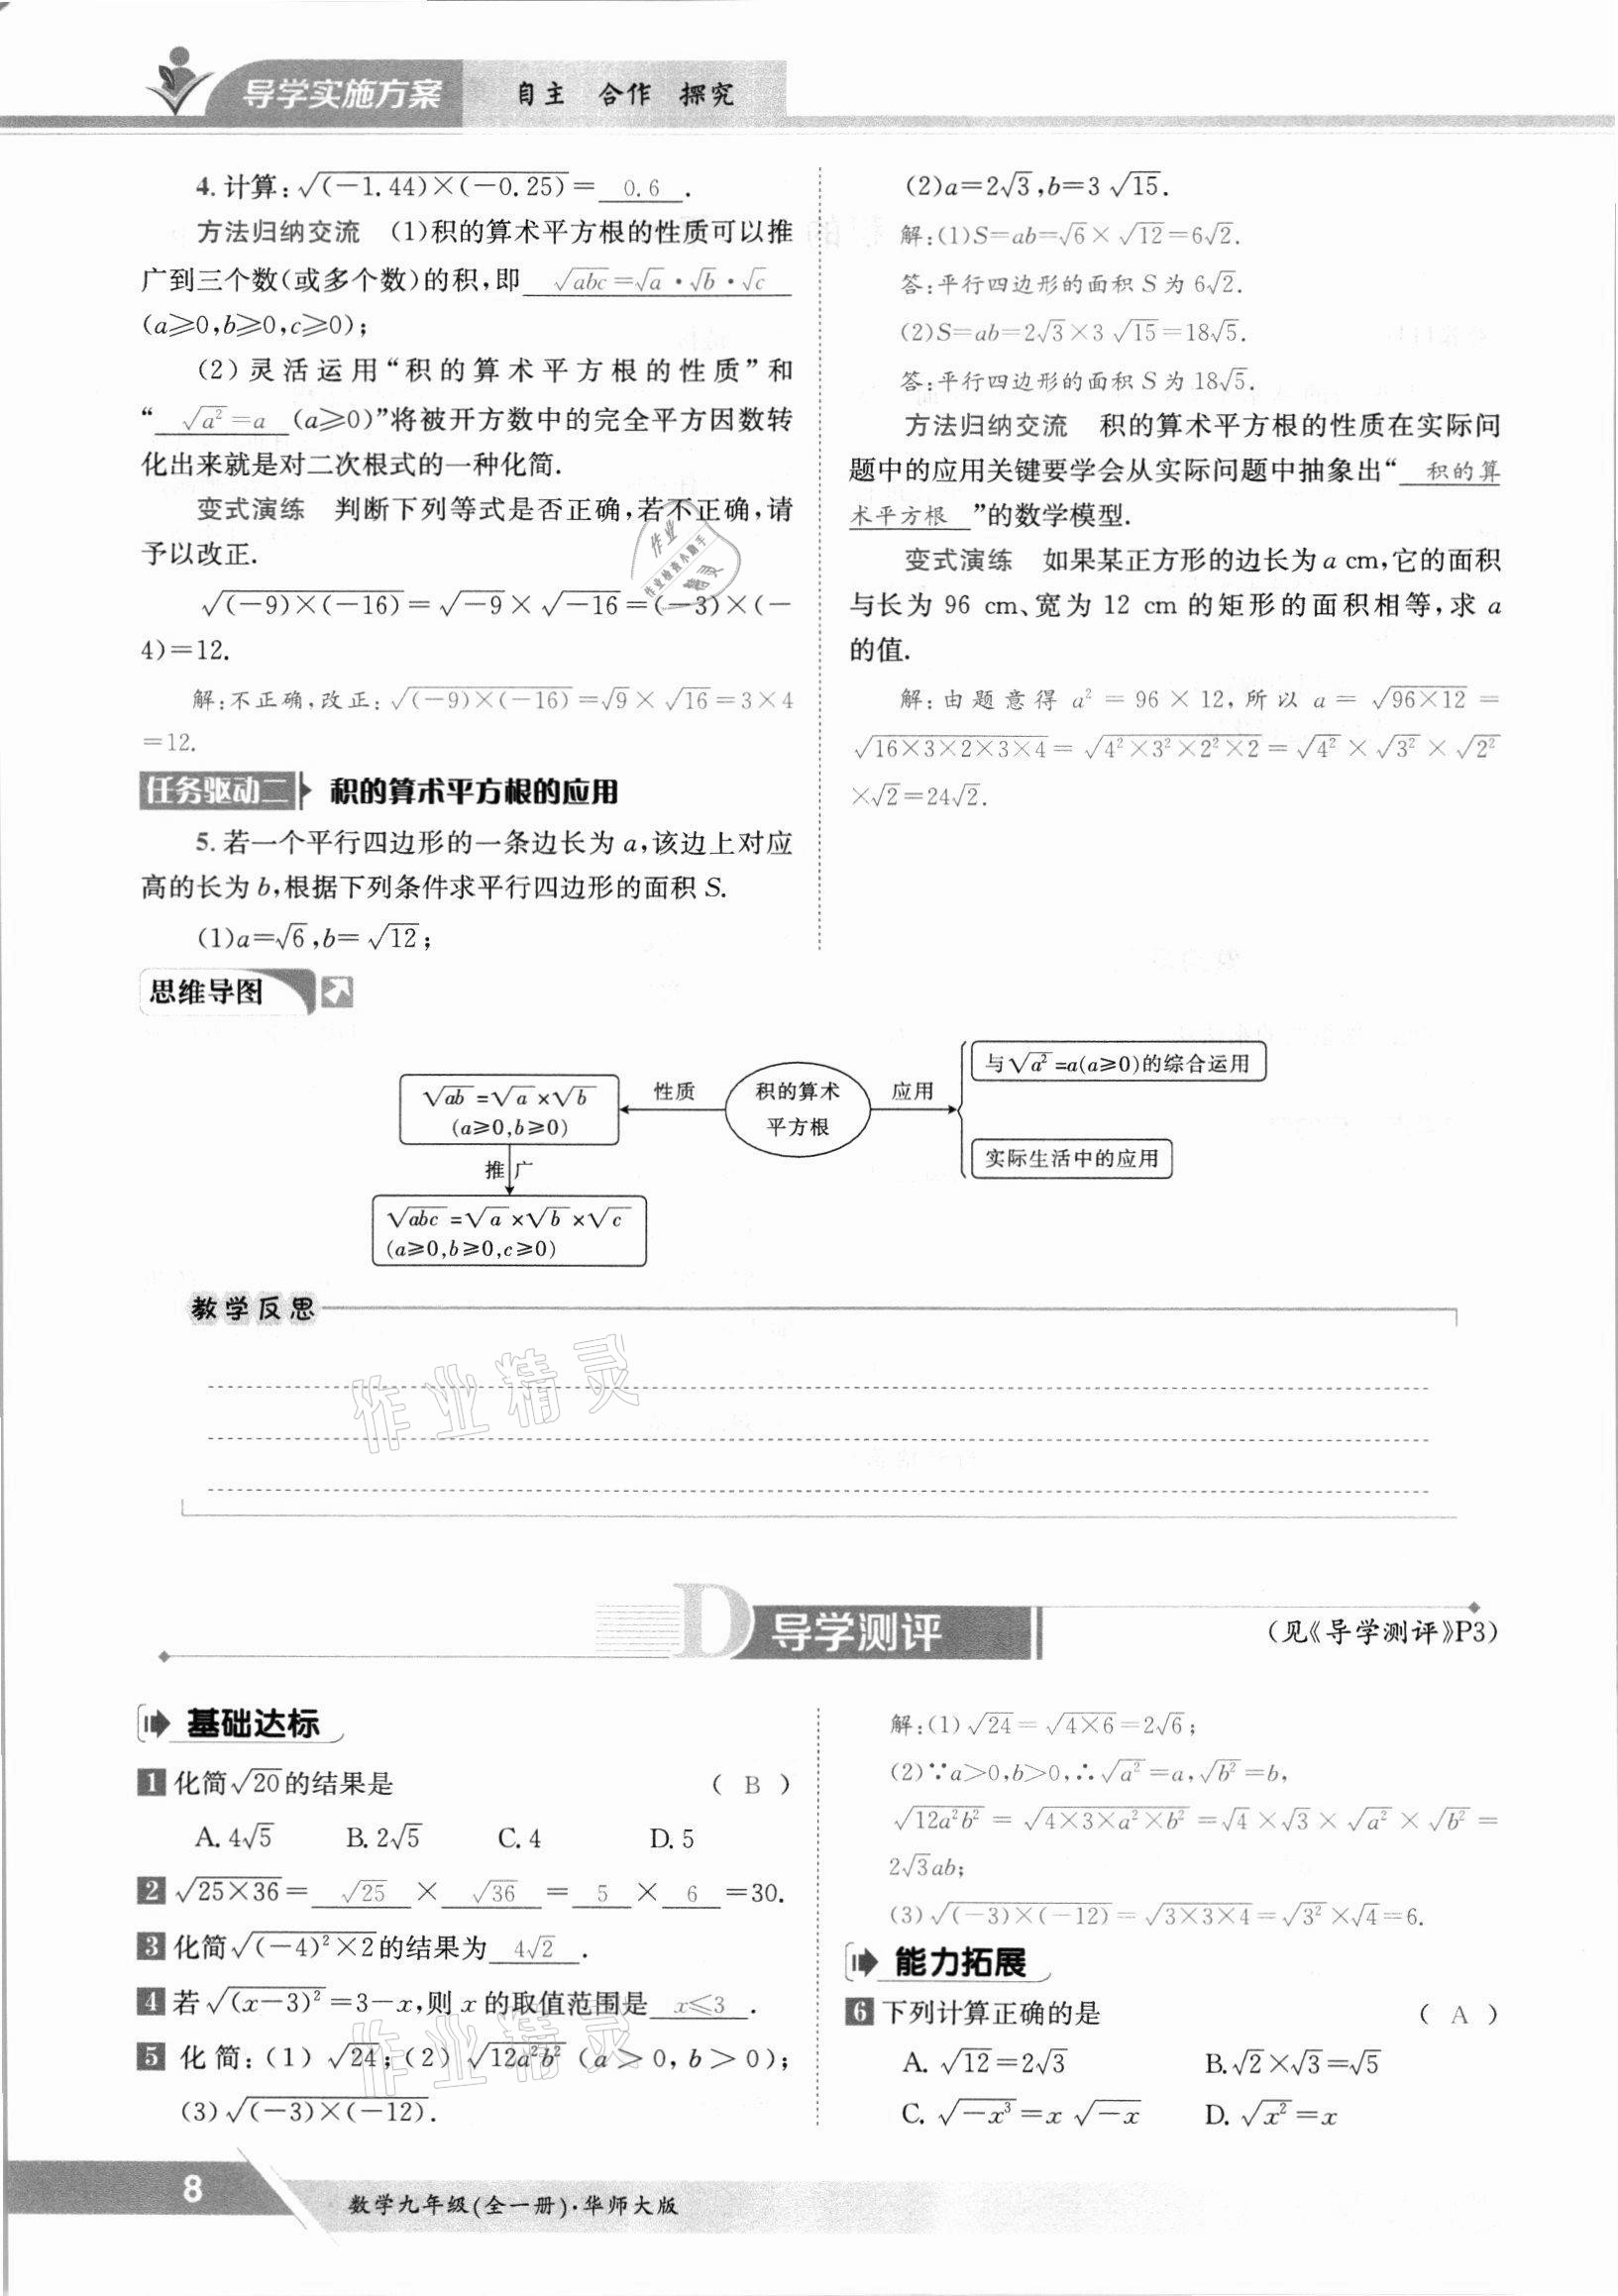 导学实施方案 自主 合作 探究
4. 计算:√(-1.44)×(-0.25)= 0.6 .
方法归纳交流 (1)积的算术平方根的性质可以推
广到三个数(或多个数)的积,即 √abc=√a·√b·√c
(a≥0,b≥0,c≥0);
(2)灵活运用“积的算术平方根的性质”和
“ √a²=a (a≥0)”将被开方数中的完全平方因数转
化出来就是对二次根式的一种化简.
变式演练 判断下列等式是否正确,若不正确,请
予以改正.
√(-9)×(-16)=√-9×√-16=(-3)×(-
4)=12.
解:不正确,改正:√(-9)×(-16)=√9×√16=3×4
=12.
任务驱动二 积的算术平方根的应用
5. 若一个平行四边形的一条边长为a,该边上对应
高的长为b,根据下列条件求平行四边形的面积S.
(1)a=√6,b=√12;
(2)a=2√3,b=3√15.
解:(1)S=ab=√6×√12=6√2.
答:平行四边形的面积S为6√2.
(2)S=ab=2√3×3√15=18√5.
答:平行四边形的面积S为18√5.
方法归纳交流 积的算术平方根的性质在实际问
题中的应用关键要学会从实际问题中抽象出“ 积的算
术平方根 ”的数学模型.
变式演练 如果某正方形的边长为a cm,它的面积
与长为96 cm、宽为12 cm的矩形的面积相等,求a
的值.
解:由题意得a²=96×12,所以a=√96×12=
√16×3×2×3×4=√4²×3²×2²×2=√4²×√3²×√2²
×√2=24√2.
思维导图
√ab=√a×√b
(a≥0,b≥0)
性质
积的算术
平方根
应用
与√a²=a(a≥0)的综合运用
实际生活中的应用
推广
√abc=√a×√b×√c
(a≥0,b≥0,c≥0)
教学反思
作业精灵
D 导学测评
(见《导学测评》P3)
基础达标
1 化简√20的结果是 ( B )
A. 4√5 B. 2√5 C. 4 D. 5
2 √25×36= √25 × √36 = 5 × 6 =30.
3 化简√(-4)²×2的结果为 4√2 .
4 若√(x-3)²=3-x,则x的取值范围是 x≤3 .
5 化简:(1)√24;(2)√12a²b²(a>0,b>0);
(3)√(-3)×(-12).
作业精灵
解:(1)√24=√4×6=2√6;
(2)∵a>0,b>0,∴√a²=a,√b²=b,
√12a²b²=√4×3×a²×b²=√4×√3×√a²×√b²=
2√3ab;
(3)√(-3)×(-12)=√3×3×4=√3²×√4=6.
能力拓展
6 下列计算正确的是 ( A )
A. √12=2√3 B. √2×√3=√5
C. √-x³=x√-x D. √x²=x
8 数学九年级(全一册)·华师大版